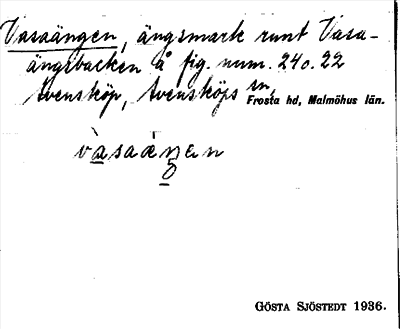 Vasaängen, ängsmark runt Vasa-
ängsbacken å fig. num. 24 o. 22
Svensköp, Svensköps sn,
Frosta hd, Malmöhus län.
vàsaäŋen
GÖSTA SJÖSTEDT 1936.